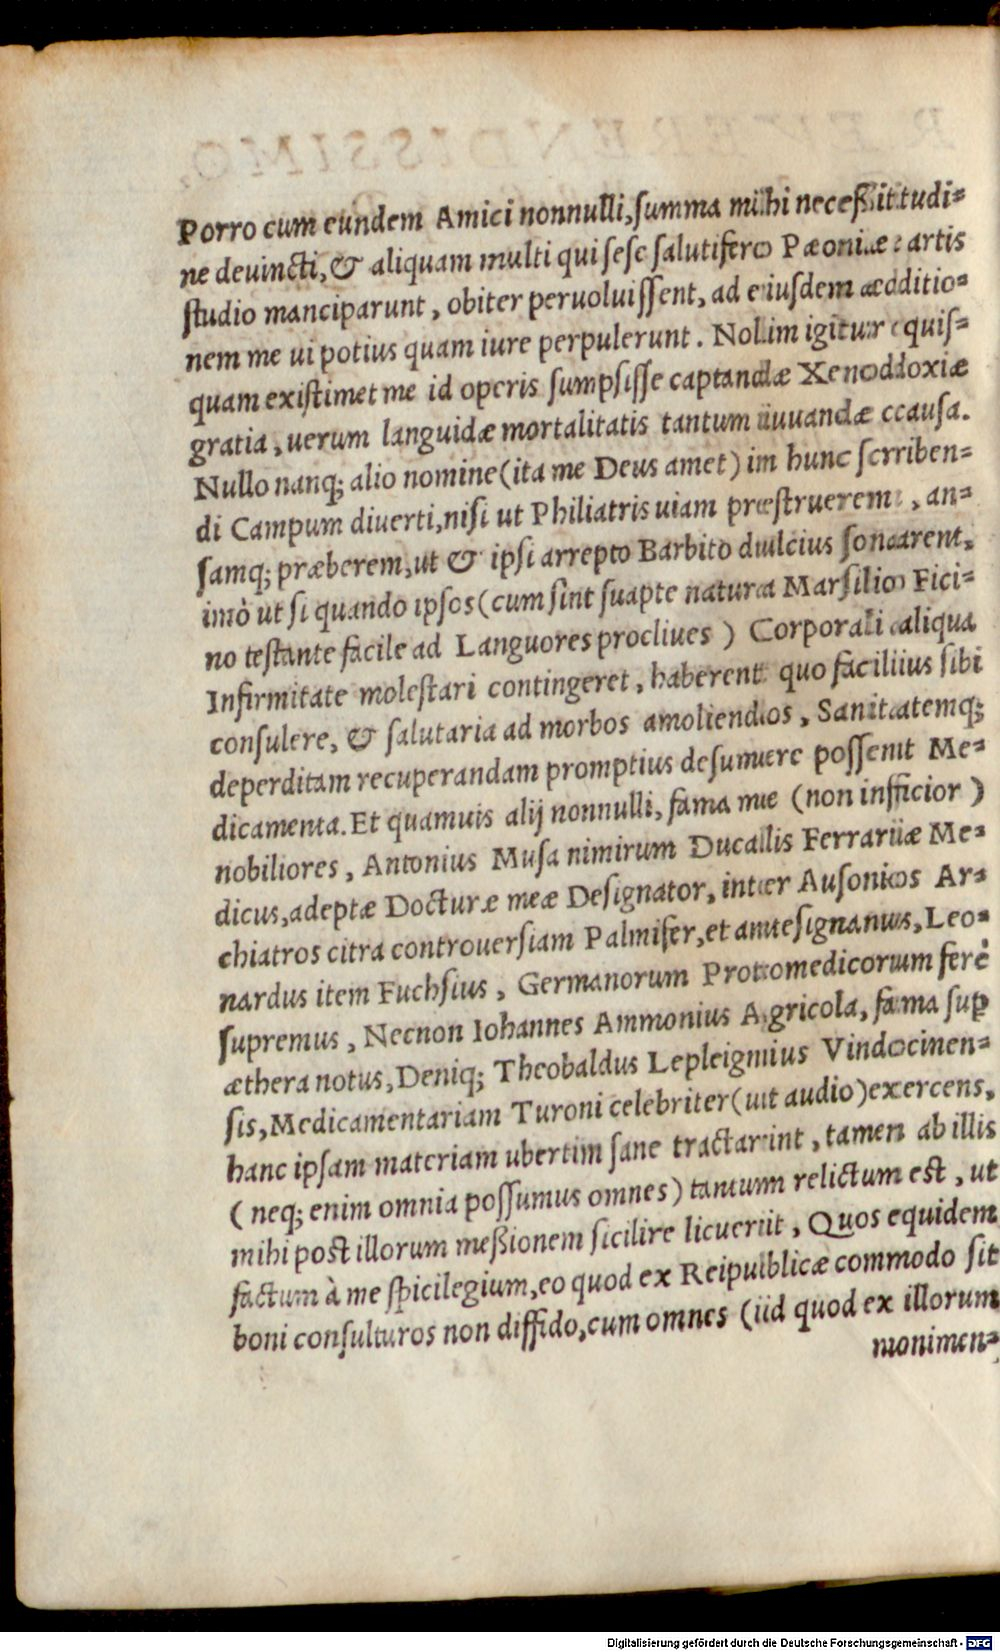 Porro cum eundem Amici nonnulli, ſumma mihi neceßitudi-
ne deuincti, & aliquam multi qui ſeſe ſalutifero Pæoniæ artis
ſtudio manciparunt, obiter peruoluiſſent, ad eiuſdem æditio-
nem me ui potius quam iure perpulerunt. Nolim igitur quiſ-
quam exiſtimet me id operis ſumpſiſſe captandæ Xenodoxiæ
gratia, uerum languidæ mortalitatis tantum iuuandæ cauſa.
Nullo nanq; alio nomine (ita me Deus amet) im hunc ſcriben-
di Campum diuerti, niſi ut Philiatris uiam præſtruerem, an-
ſamq; præberem, ut & ipſi arrepto Barbito dulcius ſonarent,
imò ut ſi quando ipſos (cum ſint ſuapte natura Marſilio Fici-
no teſtante facile ad Languores procliues) Corporali aliqua
Infirmitate moleſtari contingeret, haberent quo facilius ſibi
conſulere, & ſalutaria ad morbos amoliendos, Sanitatemq;
deperditam recuperandam promptius deſumere poſſent Me-
dicamenta. Et quamuis alij nonnulli, fama me (non infficior)
nobiliores, Antonius Muſa nimirum Ducalis Ferrariæ Me-
dicus, adeptæ Docturæ meæ Deſignator, inter Auſonios Ar-
chiatros citra controuerſiam Palmifer, et anteſignanus, Leo-
nardus item Fuchſius, Germanorum Protomedicorum ferè
ſupremus, Necnon Iohannes Ammonius Agricola, fama ſuꝑ
æthera notus, Deniq; Theobaldus Lepleignius Vindocinen-
ſis, Medicamentariam Turoni celebriter (ut audio) exercens,
hanc ipſam materiam ubertim ſane tractarint, tamen ab illis
(neq; enim omnia poſſumus omnes) tantum relictum eſt, ut
mihi poſt illorum meßionem ſicilire licuerit, Quos equidem
factum à me ſpicilegium, eo quod ex Reipublicæ commodo ſit
boni conſulturos non diffido, cum omnes (id quod ex illorum
monimen-
Digitalisierung gefördert durch die Deutsche Forschungsgemeinschaft - DFG